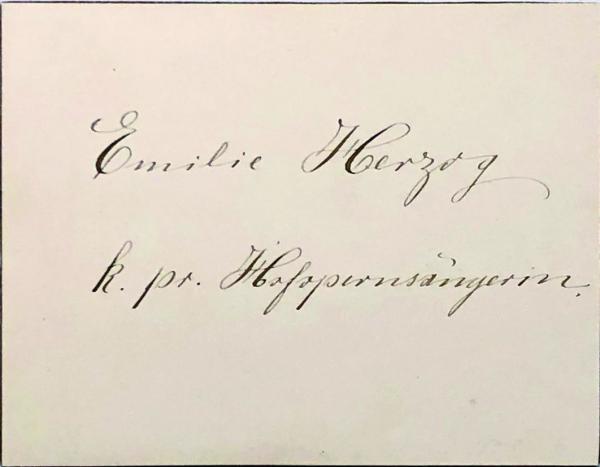 Emilie Herzog
k. pr. Hofopernsängerin.